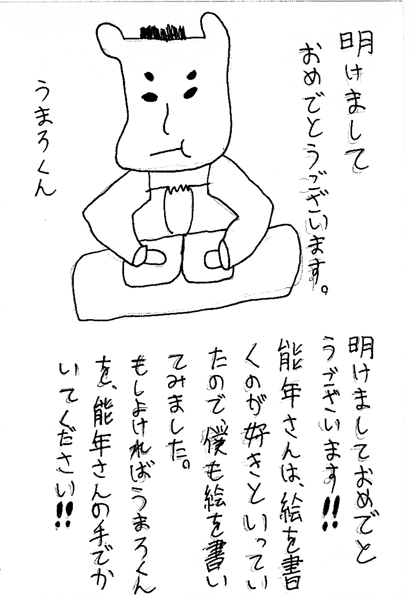 明けまして
おめでとうございます。
うまろくん
明けましておめでと
うございます!!
能年さんは、絵を書
くのが好きといってい
たので、僕も絵を書い
てみました。
もしよければうまろくん
を、能年さんの手でか
いてください!!